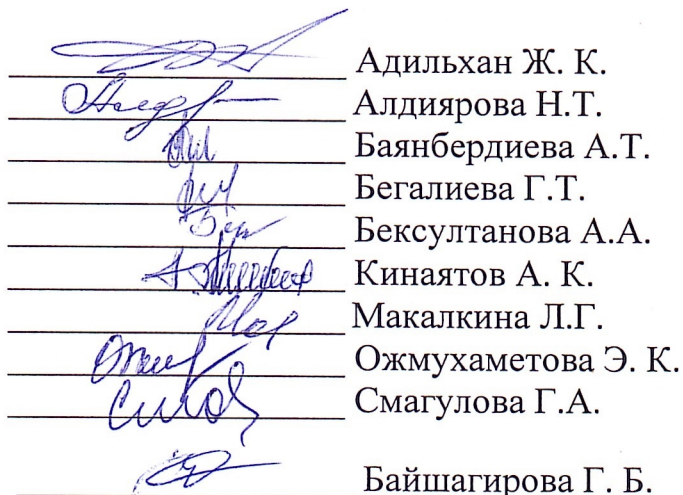 Адильхан Ж. К.
Алдиярова Н.Т.
Баянбердиева А.Т.
Бегалиева Г.Т.
Бексултанова А.А.
Кинаятов А. К.
Макалкина Л.Г.
Ожмухаметова Э. К.
Смагулова Г.А.
Байшагирова Г. Б.